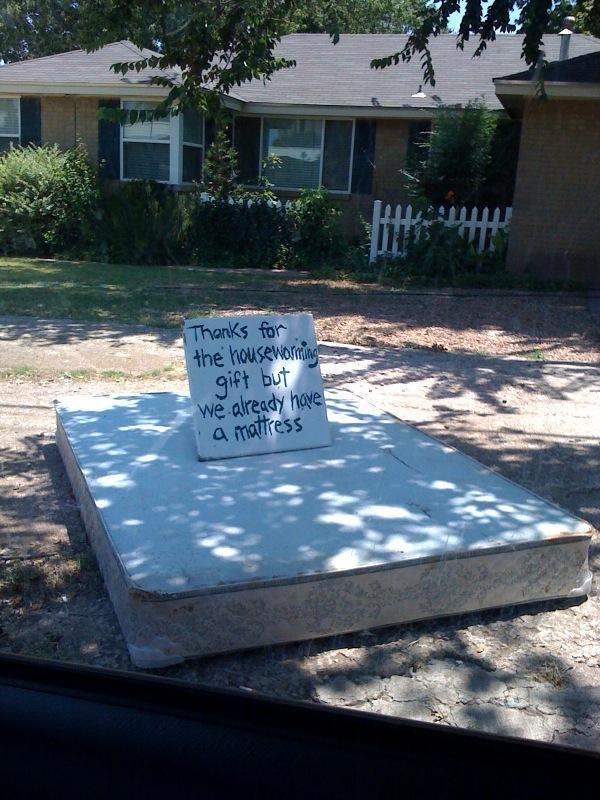 Thanks for
the housewarming
gift but
we already have
a mattress